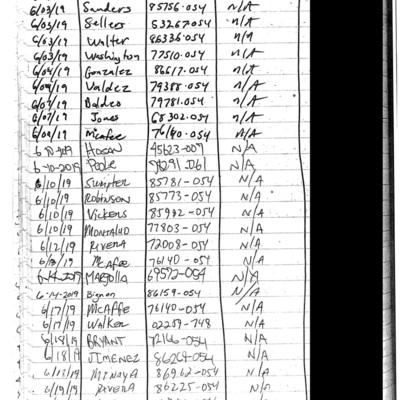 6/03/19 Sanders 85756-054 N/A
6/03/19 Sellers 53267-054 N/A
6/03/19 Walter 86336-054 N/A
6/03/19 Washington 77510-054 N/A
6/04/19 Gonzalez 86617-054 N/A
Valdez 79388-054 N/A
79781-054 N/A
6/07/19 Jones 68302-054 N/A
McAfee 76140-054 N/A
Hogan 45623-007 N/A
6-10-2019 Poole N/A
6/10/19 Sumpter 85781-054 N/A
6/10/19 Robinson 85773-054 N/A
6/10/19 Vickers N/A
6/10/19 77803-054 N/A
6/12/19 Rivera 72008-054 N/A
McAfee 76140-054 N/A
69572-054 N/A
6-14-2019 Bignon 86159-054 N/A
6/17/19 McAffe 76140-054 N/A
6/17/19 Walker 02259-748 N/A
6/18/19 Bryant N/A
6/18/19 Jimenez 86264-054 N/A
Minaya 86962-054 N/A
6/19/19 Rivera 86225-054 N/A